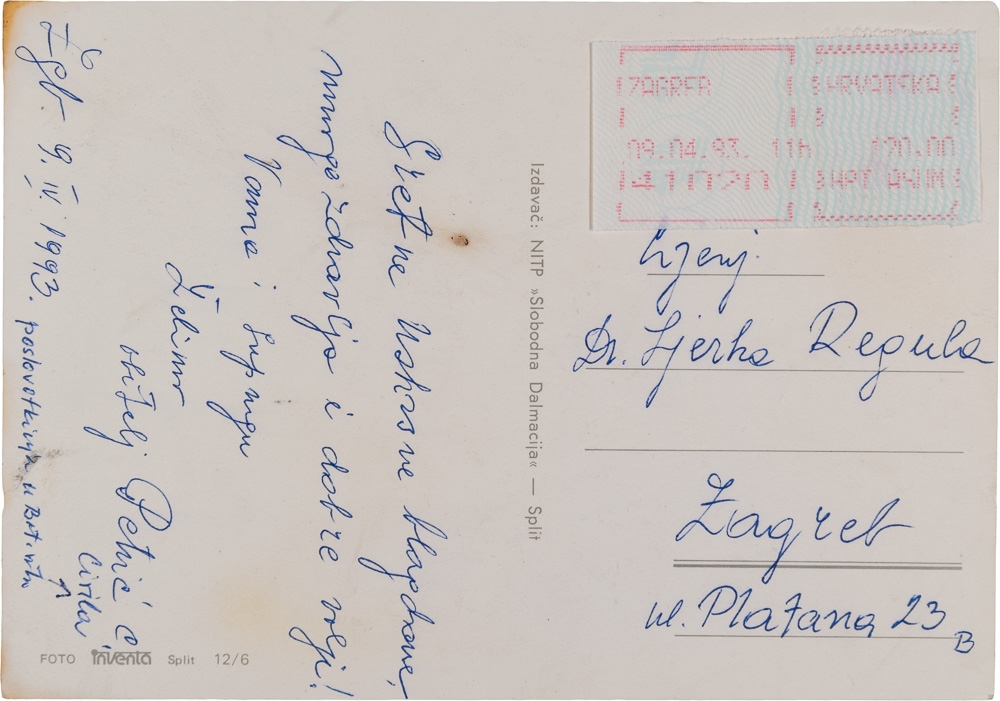 Sretne Uskrsne blagdane,
mnogo zdravlja i dobre volje!
Vama i suprugu
Želimo
obitelj Petrić
Ćirila
Zgb. 9. IV. 1993.
Izdavač: NITP »Slobodna Dalmacija« — Split
FOTO inventa Split 12/6
ZAGREB HRVATSKA
09.04.93. 11h 120.00
410020 HPT
Cijenj.
Dr. Ljerka Regula
Zagreb
ul. Platana 23
B